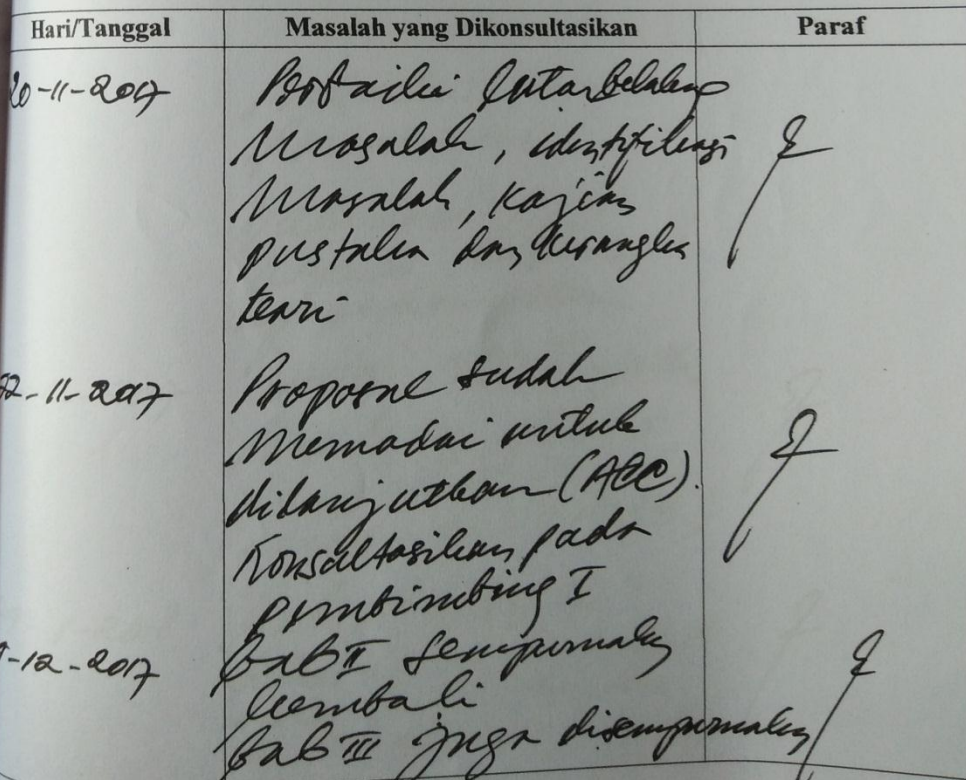 Hari/Tanggal Masalah yang Dikonsultasikan Paraf
20-11-2017 Perbaiki latar belakang
Masalah, identifikasi
Masalah, kajian
pustaka dan kerangka
teori
22-11-2017 Proposal sudah
Memadai untuk
dilanjutkan (ACC).
Konsultasikan pada
pembimbing I
-12-2017 Bab II sempurnakan
kembali
Bab III juga disempurnakan